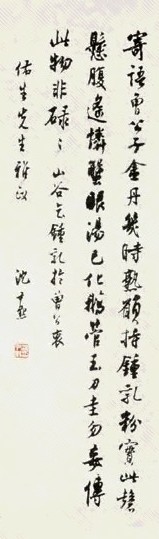 寄語曾公子金丹幾時熟願持鍾乳粉實此磬
懸腹遙憐蟹眼湯已化鵝管玉刀圭勿妄傳
此物非碌〻山谷乞鍾乳於曾公袞
佑生先生雅政
沈尹默